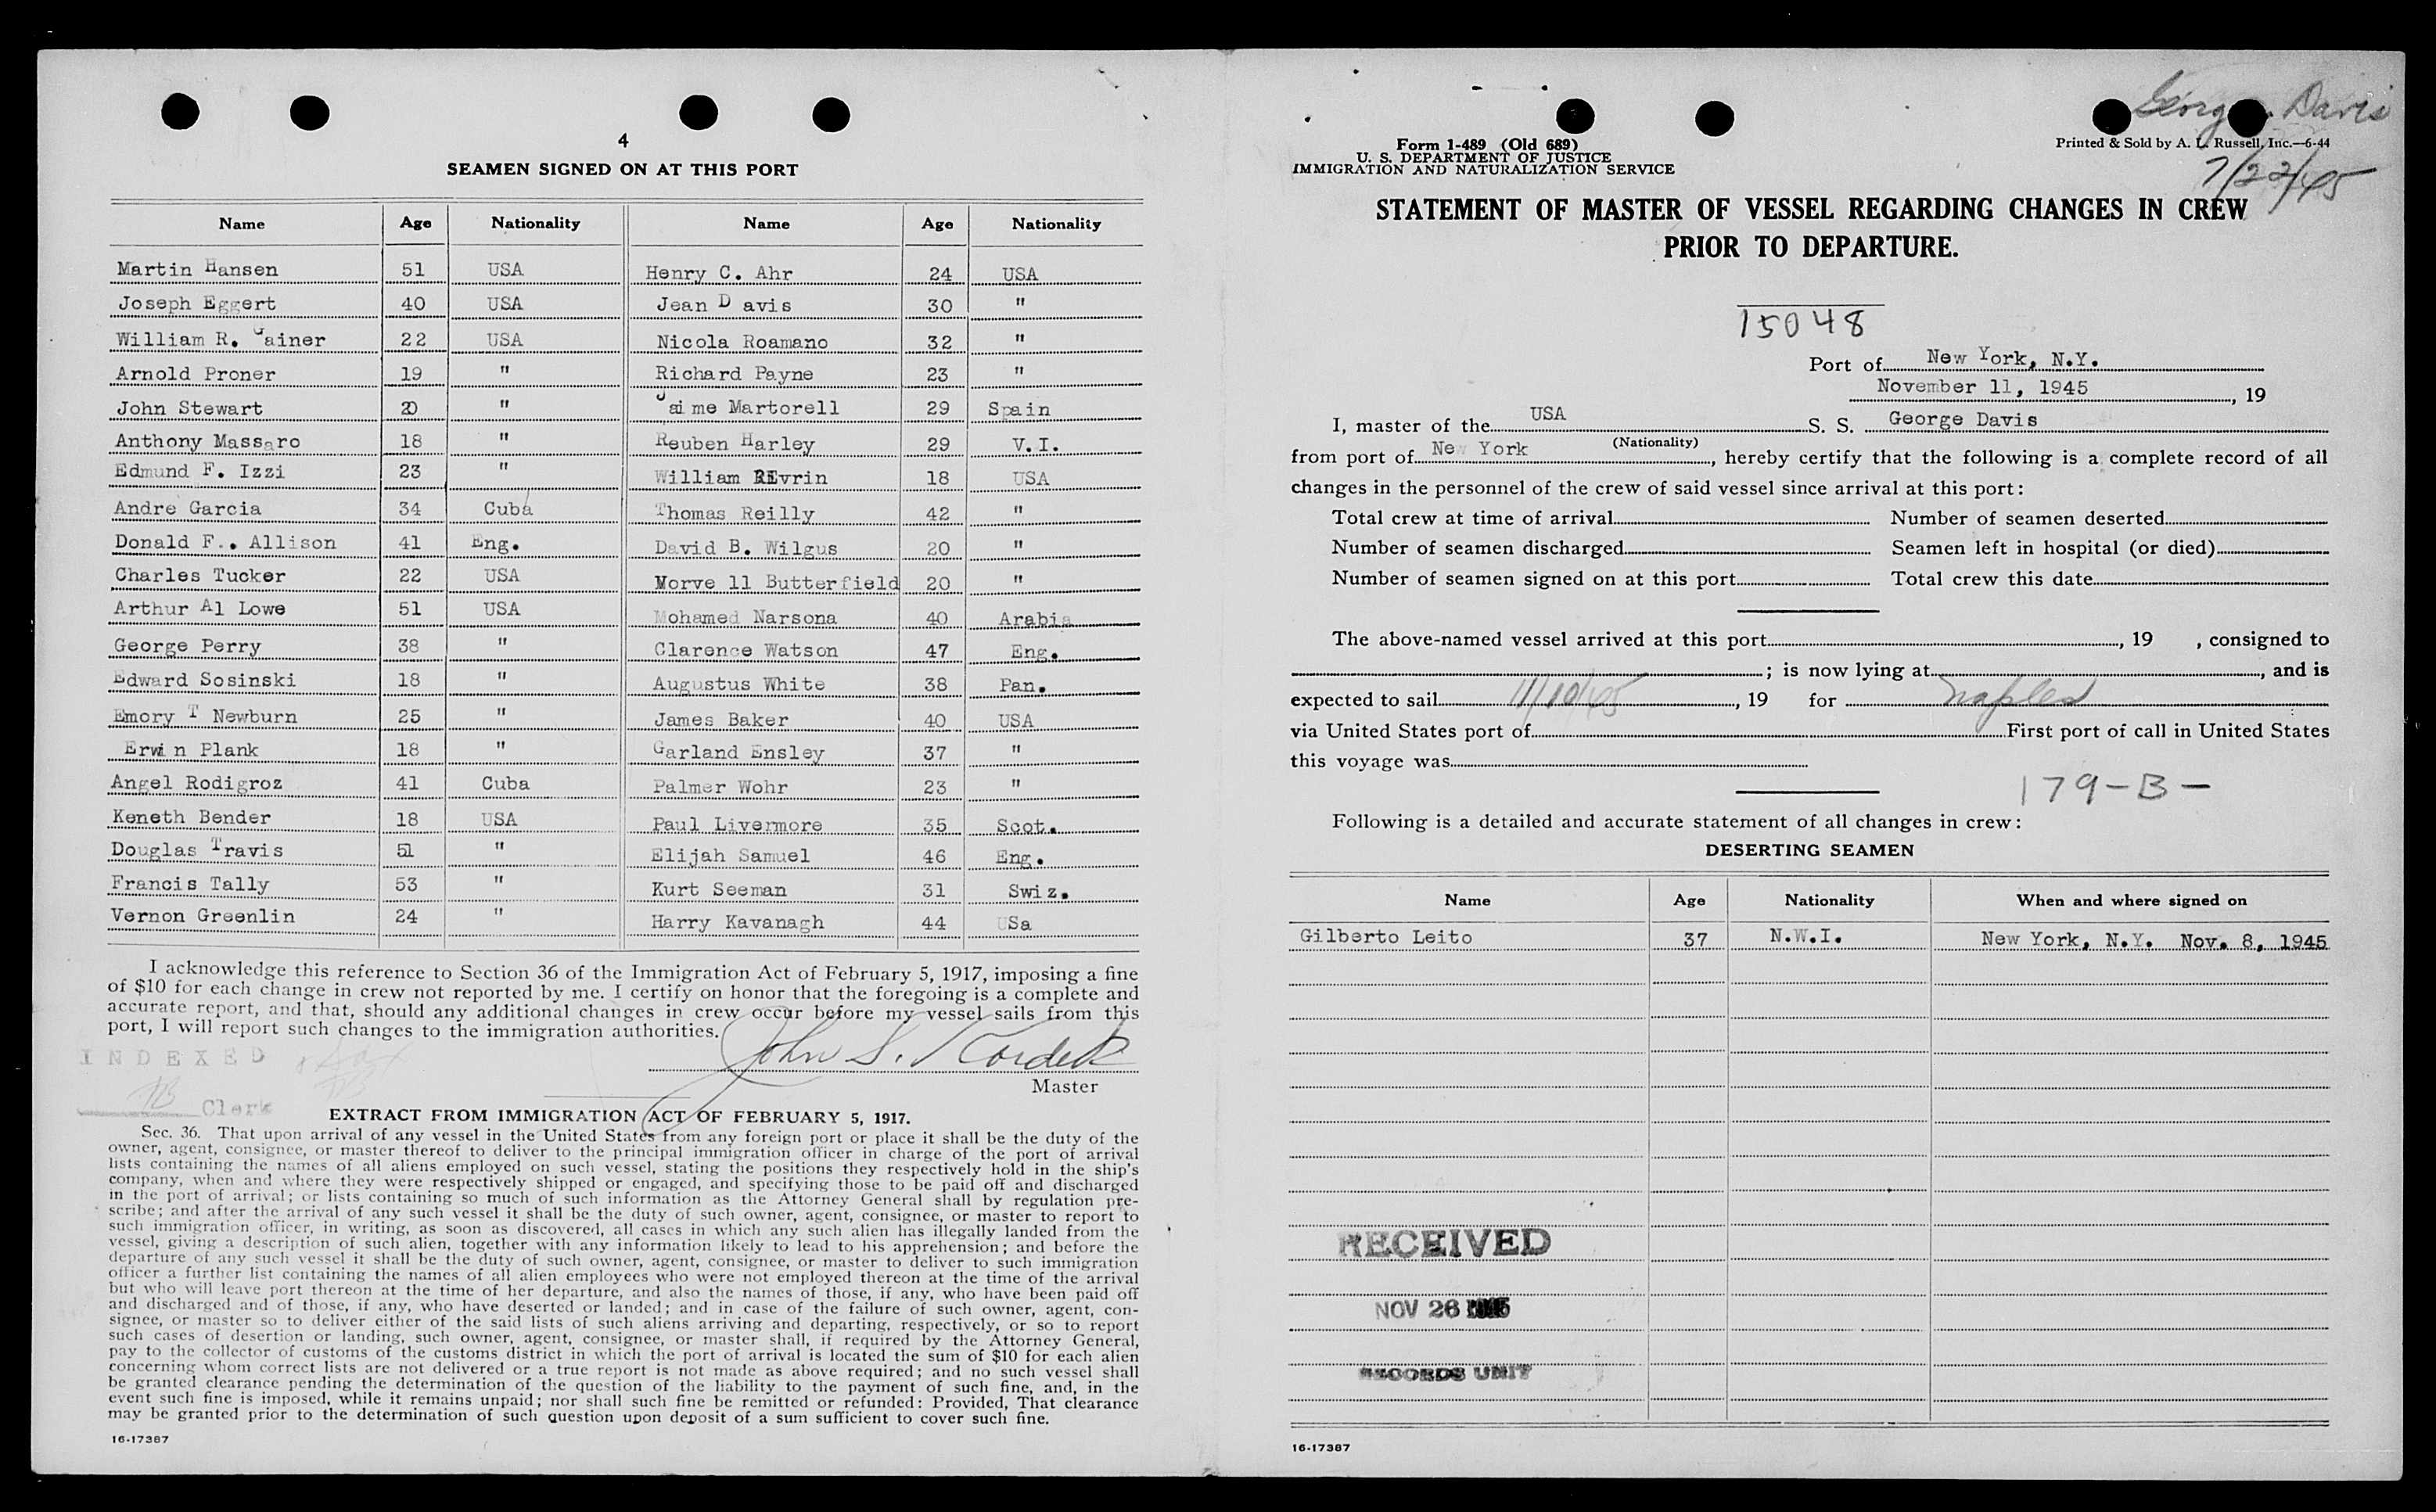 4
SEAMEN SIGNED ON AT THIS PORT
Name Age Nationality Name Age Nationality
Martin Hansen 51 USA Henry C. Ahr 24 USA
Joseph Eggert 40 USA Jean D avis 30 "
William R. Gainer 22 USA Nicola Roamano 32 "
Arnold Proner 19 " Richard Payne 23 "
John Stewart 20 " Jaime Martorell 29 Spain
Anthony Massaro 18 " Reuben Harley 29 V.I.
Edmund F. Izzi 23 " William 18 USA
Andre Garcia 34 Cuba Thomas Reilly 42 "
Donald F.. Allison 41 Eng. David B. Wilgus 20 "
Charles Tucker 22 USA Morve ll Butterfield 20 "
Arthur Al Lowe 51 USA Mohamed Narsona 40 Arabia
George Perry 38 " Clarence Watson 47 Eng.
Edward Sosinski 18 " Augustus White 38 Pan.
Emory T Newburn 25 " James Baker 40 USA
Erwin Plank 18 " Garland Ensley 37 "
Angel Rodigroz 41 Cuba Palmer Wohr 23 "
Keneth Bender 18 USA Paul Livermore 35 Scot.
Douglas Travis 51 " Elijah Samuel 46 Eng.
Francis Tally 53 " Kurt Seeman 31 Swiz.
Vernon Greenlin 24 " Harry Kavanagh 44 USa
I acknowledge this reference to Section 36 of the Immigration Act of February 5, 1917, imposing a fine
of $10 for each change in crew not reported by me. I certify on honor that the foregoing is a complete and
accurate report, and that, should any additional changes in crew occur before my vessel sails from this
port, I will report such changes to the immigration authorities.
John S.
Master
INDEXED
Clerk
EXTRACT FROM IMMIGRATION ACT OF FEBRUARY 5, 1917.
Sec. 36. That upon arrival of any vessel in the United States from any foreign port or place it shall be the duty of the
owner, agent, consignee, or master thereof to deliver to the principal immigration officer in charge of the port of arrival
lists containing the names of all aliens employed on such vessel, stating the positions they respectively hold in the ship's
company, when and where they were respectively shipped or engaged, and specifying those to be paid off and discharged
in the port of arrival; or lists containing so much of such information as the Attorney General shall by regulation pre-
scribe; and after the arrival of any such vessel it shall be the duty of such owner, agent, consignee, or master to report to
such immigration officer, in writing, as soon as discovered, all cases in which any such alien has illegally landed from the
vessel, giving a description of such alien, together with any information likely to lead to his apprehension; and before the
departure of any such vessel it shall be the duty of such owner, agent, consignee, or master to deliver to such immigration
officer a further list containing the names of all alien employees who were not employed thereon at the time of the arrival
but who will leave port thereon at the time of her departure, and also the names of those, if any, who have been paid off
and discharged and of those, if any, who have deserted or landed; and in case of the failure of such owner, agent, con-
signee, or master so to deliver either of the said lists of such aliens arriving and departing, respectively, or so to report
such cases of desertion or landing, such owner, agent, consignee, or master shall, if required by the Attorney General,
pay to the collector of customs of the customs district in which the port of arrival is located the sum of $10 for each alien
concerning whom correct lists are not delivered or a true report is not made as above required; and no such vessel shall
be granted clearance pending the determination of the question of the liability to the payment of such fine, and, in the
event such fine is imposed, while it remains unpaid; nor shall such fine be remitted or refunded: Provided, That clearance
may be granted prior to the determination of such question upon deposit of a sum sufficient to cover such fine.
16-17387
George Davis
Form 1-489 (Old 689)
U. S. DEPARTMENT OF JUSTICE
IMMIGRATION AND NATURALIZATION SERVICE
Printed & Sold by A. L. Russell, Inc.—6-44
7/22/45
STATEMENT OF MASTER OF VESSEL REGARDING CHANGES IN CREW
PRIOR TO DEPARTURE.
15048
Port of New York, N.Y.
November 11, 1945, 19
I, master of the USA S. S. George Davis
(Nationality)
from port of New York, hereby certify that the following is a complete record of all
changes in the personnel of the crew of said vessel since arrival at this port:
Total crew at time of arrival Number of seamen deserted
Number of seamen discharged Seamen left in hospital (or died)
Number of seamen signed on at this port Total crew this date
The above-named vessel arrived at this port, 19 , consigned to
; is now lying at, and is
expected to sail 11/10/45, 19 for Naples
via United States port of First port of call in United States
this voyage was
179-B-
Following is a detailed and accurate statement of all changes in crew:
DESERTING SEAMEN
Name Age Nationality When and where signed on
Gilberto Leito 37 N.W.I. New York, N.Y. Nov. 8, 1945
RECEIVED
NOV 26 1945
RECORDS UNIT
16-17387